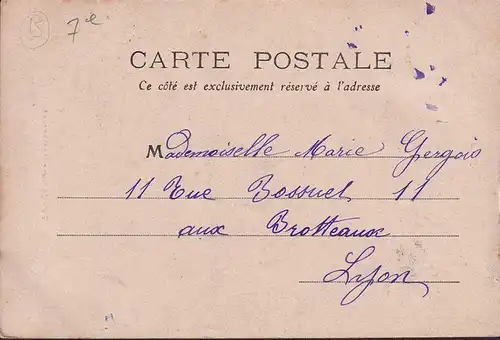 7e
CARTE POSTALE
Ce côté est exclusivement réservé à l'adresse
Mademoiselle Marie Gergois
11 Rue Bossuet 11
aux Brotteaux
Lyon